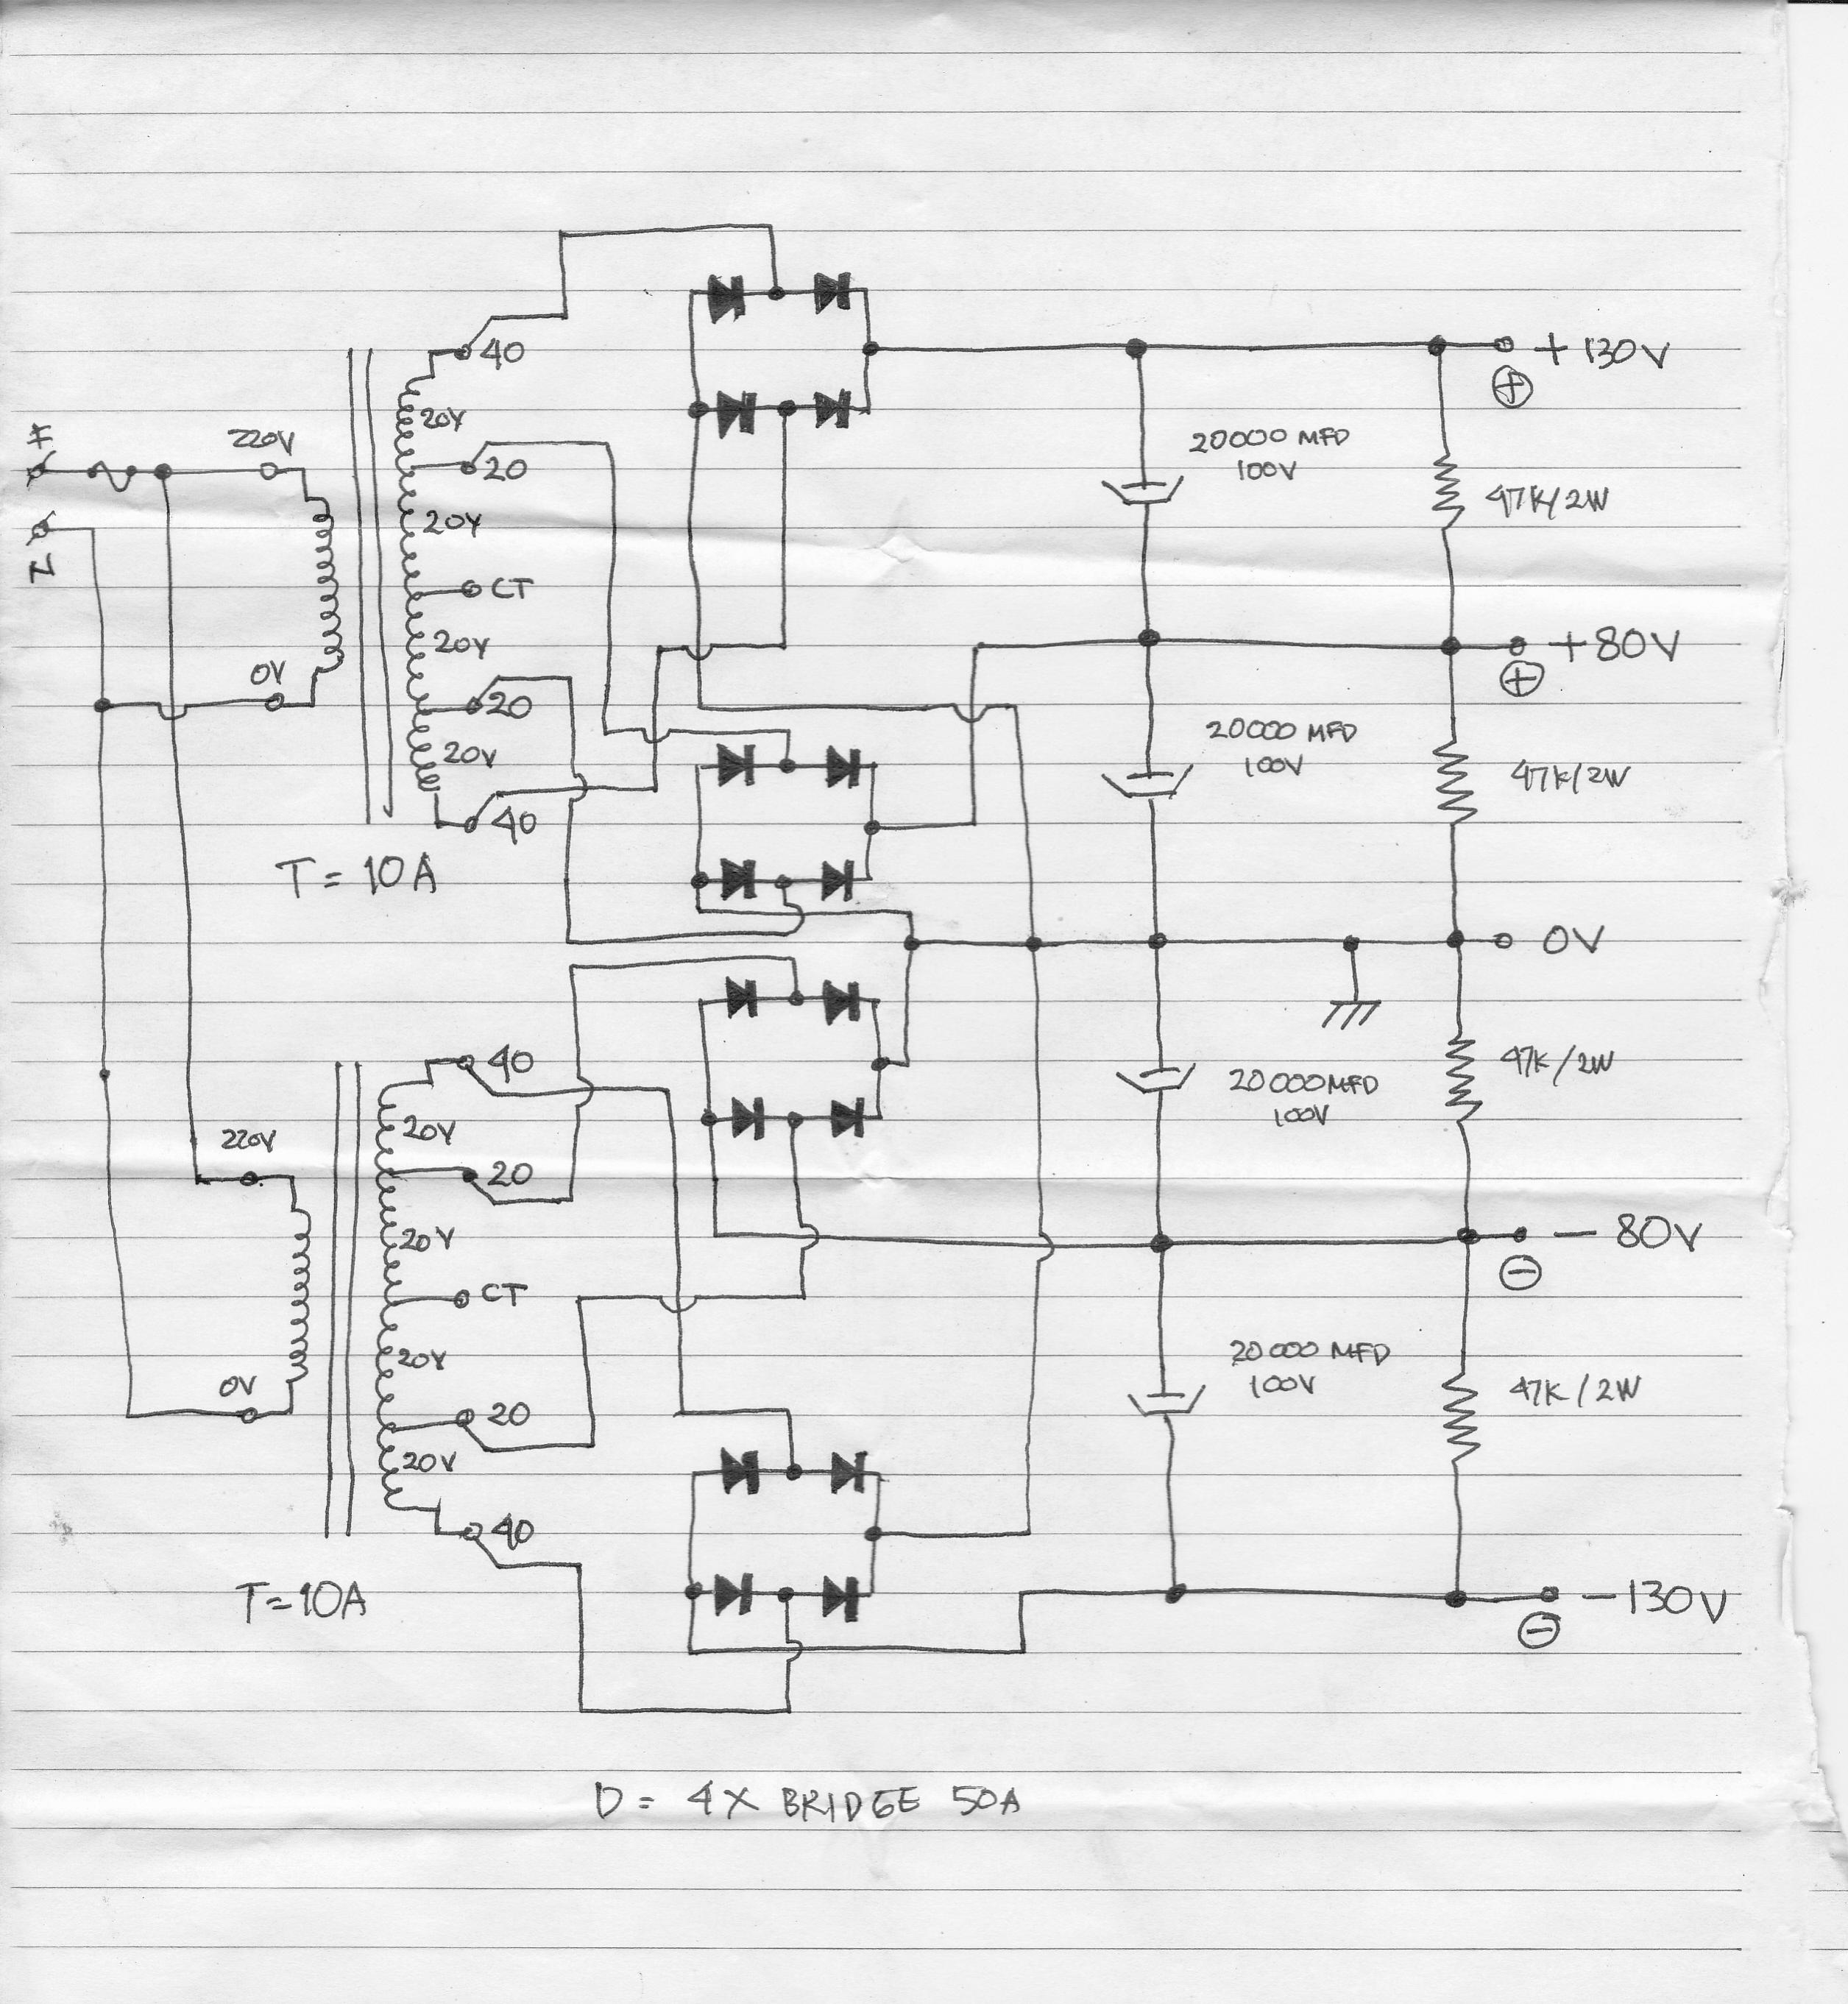 40
+130V
⊕
20V
20000 MFD
100V
F
220V
20
47K/2W
20V
CT
N
20V
+80V
⊕
0V
20
20000 MFD
100V
20V
47K/2W
40
T=10A
0V
40
47K/2W
20000MFD
100V
20V
220V
20
20V
-80V
⊖
CT
20V
20000 MFD
100V
0V
47K/2W
20
20V
40
T=10A
-130V
⊖
D = 4X BRIDGE 50A